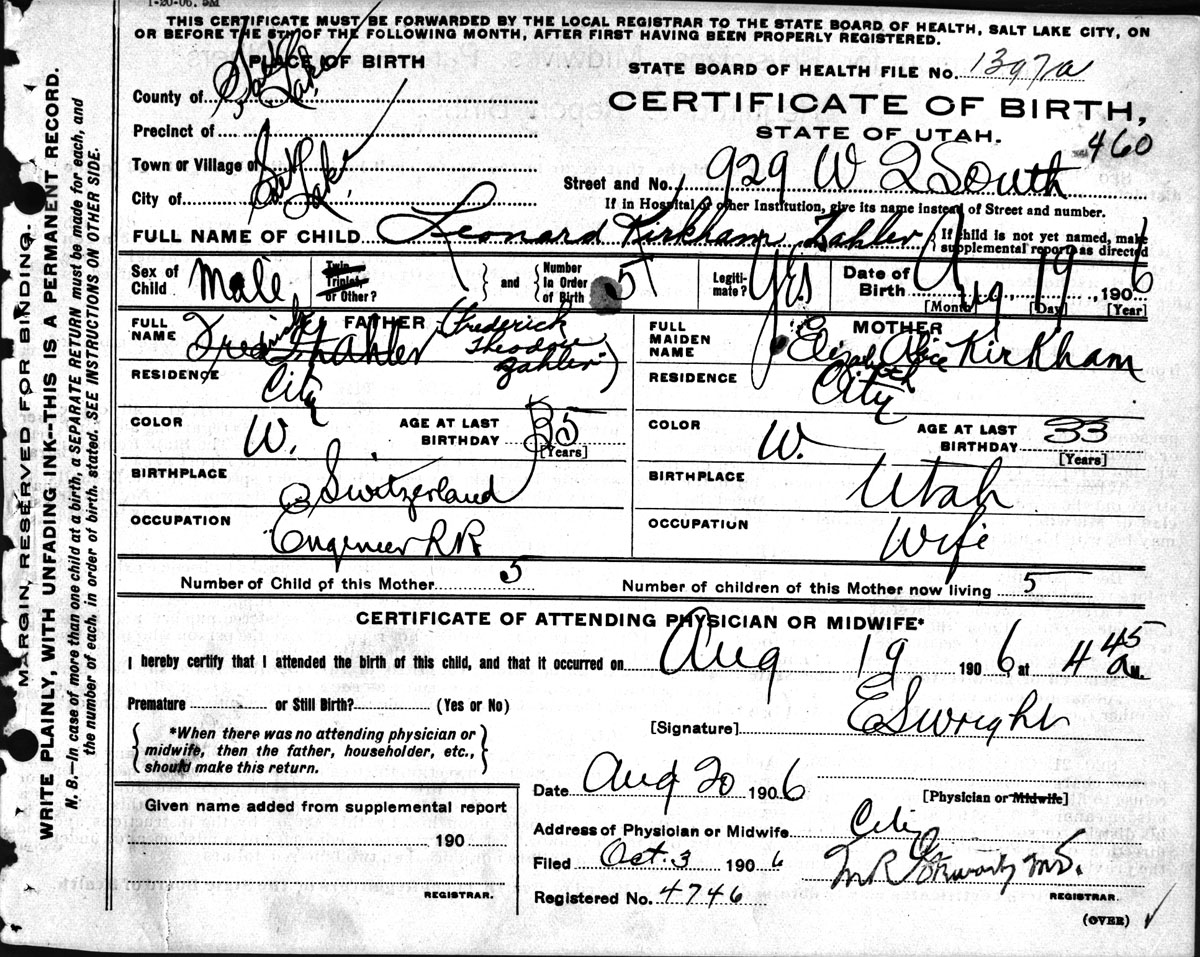 1-20-06. 5M
THIS CERTIFICATE MUST BE FORWARDED BY THE LOCAL REGISTRAR TO THE STATE BOARD OF HEALTH, SALT LAKE CITY, ON
OR BEFORE THE 5TH OF THE FOLLOWING MONTH, AFTER FIRST HAVING BEEN PROPERLY REGISTERED.
PLACE OF BIRTH
STATE BOARD OF HEALTH FILE No. 1397a
County of Salt Lake
CERTIFICATE OF BIRTH,
Precinct of
STATE OF UTAH.
460
Town or Village of
City of Salt Lake
Street and No. 929 W 2 South
If in Hospital or other Institution, give its name instead of Street and number.
FULL NAME OF CHILD Leonard Kirkham Zahler { If child is not yet named, make
supplemental report as directed
Sex of Child Male Twin, Triplet, or Other? } and { Number in Order of Birth 5 Legiti-mate? Yes Date of Birth Aug. 19, 1906
[Month] [Day] [Year]
FATHER
FULL NAME Fred T Zahler (Frederick Theodore Zahler)
MOTHER
FULL MAIDEN NAME Elizabeth Alice Kirkham
RESIDENCE City
RESIDENCE City
COLOR W. AGE AT LAST BIRTHDAY 35 [Years]
COLOR W. AGE AT LAST BIRTHDAY 33 [Years]
BIRTHPLACE Switzerland
BIRTHPLACE Utah
OCCUPATION Engineer RR
OCCUPATION Wife
Number of Child of this Mother 5 Number of children of this Mother now living 5
CERTIFICATE OF ATTENDING PHYSICIAN OR MIDWIFE*
I hereby certify that I attended the birth of this child, and that it occurred on Aug 19 1906 at 4 45 a M.
Premature or Still Birth? (Yes or No)
[Signature] E S Wright
{ *When there was no attending physician or
midwife, then the father, householder, etc.,
should make this return. }
Date Aug 20 1906
[Physician or Midwife]
Given name added from supplemental report
190
REGISTRAR.
Address of Physician or Midwife City
Filed Oct. 3 1906
M R MD.
Registered No. 4746
REGISTRAR.
(OVER)
MARGIN RESERVED FOR BINDING.
WRITE PLAINLY, WITH UNFADING INK--THIS IS A PERMANENT RECORD.
N. B.—In case of more than one child at a birth, a SEPARATE RETURN must be made for each, and
the number of each, in order of birth, stated. SEE INSTRUCTIONS ON OTHER SIDE.